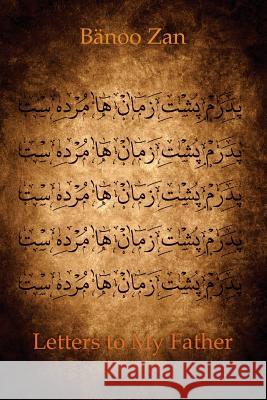 Bänoo Zan
پدرم پشت زمان ها مرده ست
پدرم پشت زمان ها مرده ست
پدرم پشت زمان ها مرده ست
پدرم پشت زمان ها مرده ست
پدرم پشت زمان ها مرده ست
Letters to My Father